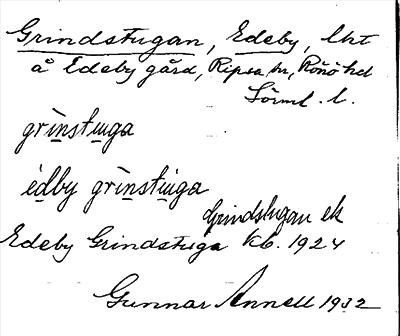 Grindstugan, Edeby, lht
å Edeby gård, Ripsa sn, Rönö hd
Sörml. l.
grìnstu̲ga
èdby grìnstu̲ga
Grindstugan ek
Edeby Grindstuga Kb. 1924
Gunnar Annell 1932